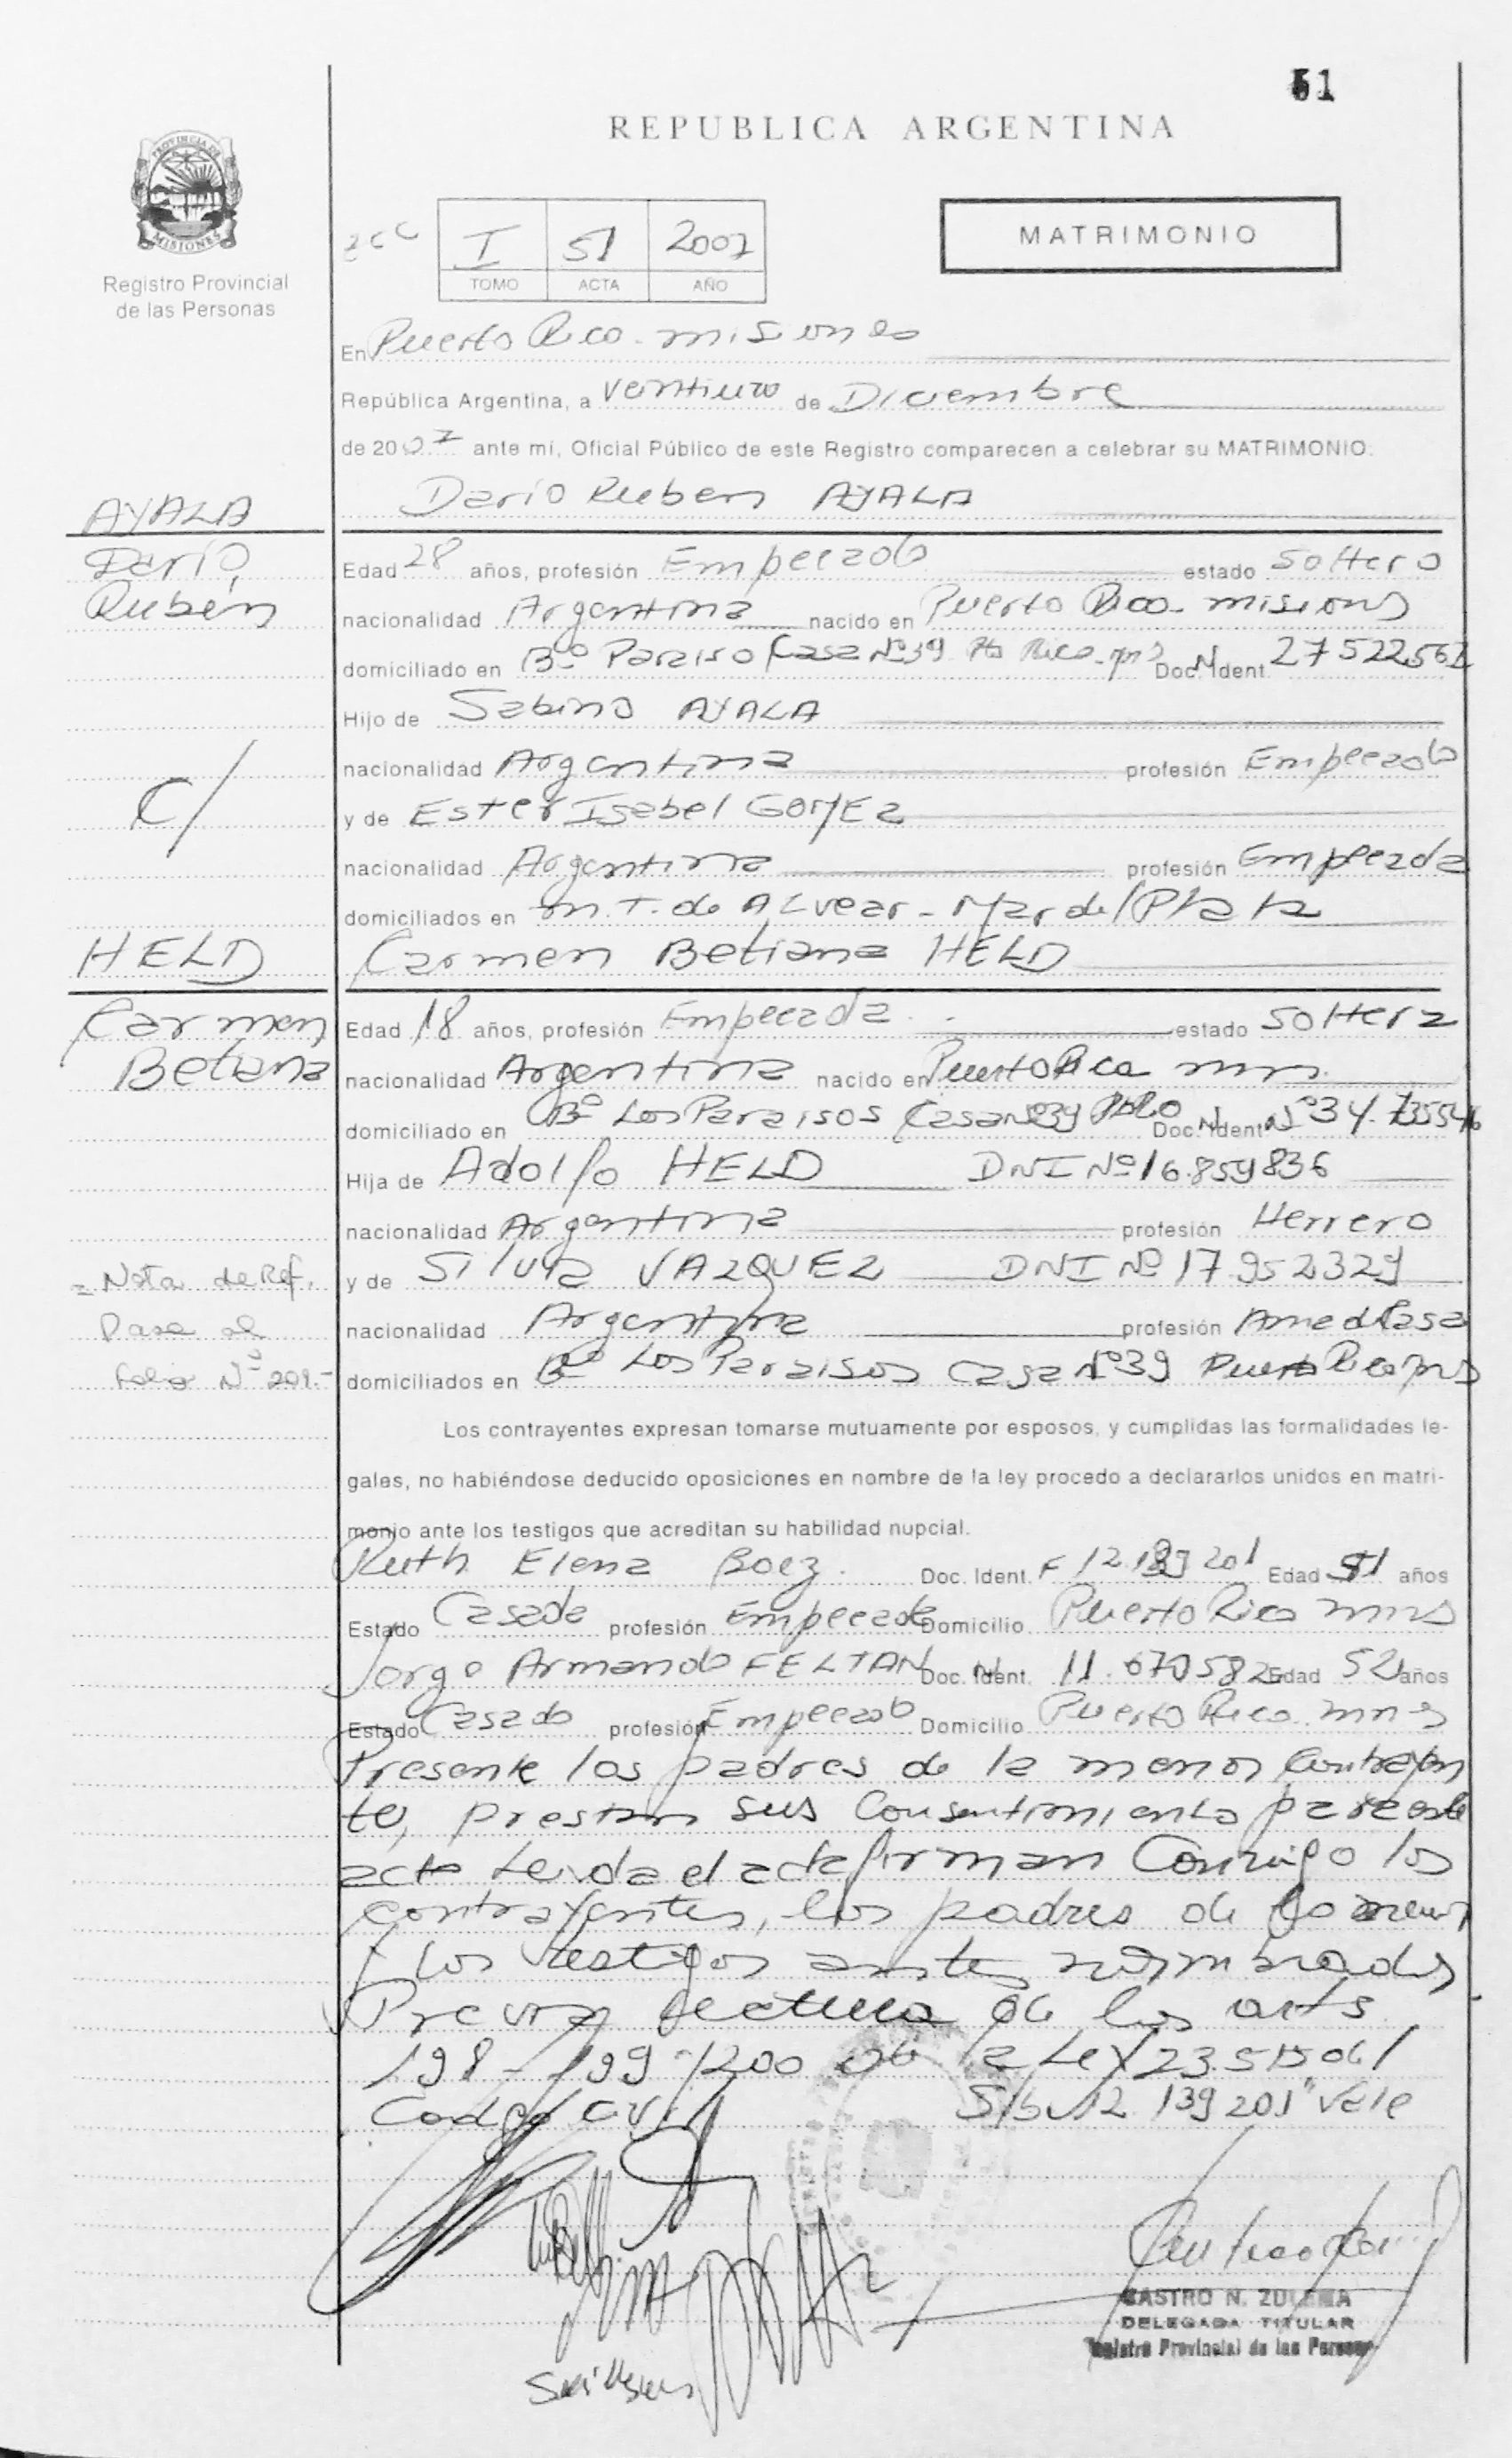 51
REPUBLICA ARGENTINA
PROVINCIA DE
MISIONES
Registro Provincial
de las Personas
I 51 2007
TOMO ACTA AÑO
MATRIMONIO
En Puerto Rico - misiones
República Argentina, a ventiuno de Diciembre
de 2007 ante mí, Oficial Público de este Registro comparecen a celebrar su MATRIMONIO:
AYALA
Darío Ruben AYALA
Darío
Rubén
Edad 28 años, profesión Empleado estado Soltero
nacionalidad Argentina nacido en Puerto Rico - misiones
domiciliado en Bº Paraiso Casa Nº39 Pto Rico - mns Doc. Ident. 27522562
Hijo de Sabino AYALA
nacionalidad Argentina profesión Empleado
C/
y de Ester Isabel GOMEZ
nacionalidad Argentina profesión Empleada
domiciliados en M. T. de ALvear - Mar del Plata
HELD
Carmen Betiana HELD
Carmen
Betiana
Edad 18 años, profesión Empleada estado Soltera
nacionalidad Argentina nacido en Puerto Rico mns.
domiciliado en Bº Los Paraisos Casa Nº39 Doc. Ident. Nº 34.735546
Hija de Adolfo HELD DNI Nº 16.859836
nacionalidad Argentina profesión Herrero
= Nota de Ref.
y de Silvia VAZQUEZ DNI Nº 17.952329
Pasa al
nacionalidad Argentina profesión Ama d Casa
folio Nº 209.-
domiciliados en Bº Los Paraisos Casa Nº39 Puerto Rico mns
Los contrayentes expresan tomarse mutuamente por esposos, y cumplidas las formalidades le-
gales, no habiéndose deducido oposiciones en nombre de la ley procedo a declararlos unidos en matri-
monio ante los testigos que acreditan su habilidad nupcial.
Ruth Elena Boez. Doc. Ident. F 12.139 201 Edad 51 años
Estado Casada profesión Empleada Domicilio Puerto Rico mns
Jorge Armando FELTAN Doc. Ident. 11.670582 Edad 52 años
Estado Casado profesión Empleado Domicilio Puerto Rico. mns
Presente los padres de la menor Contrayen
te, prestan sus Consentimiento para este
acto Leida el acta firman Conmigo los
contrayentes, los padres de la menor
y los testigos antes nombrados
Previa lectura de los arts
198 - 199 - 200 de la Ley 23.515 del
Codigo Civil S/b: 12.139 201" Vale
CASTRO N. ZULEMA
DELEGADA TITULAR
Registro Provincial de las Personas